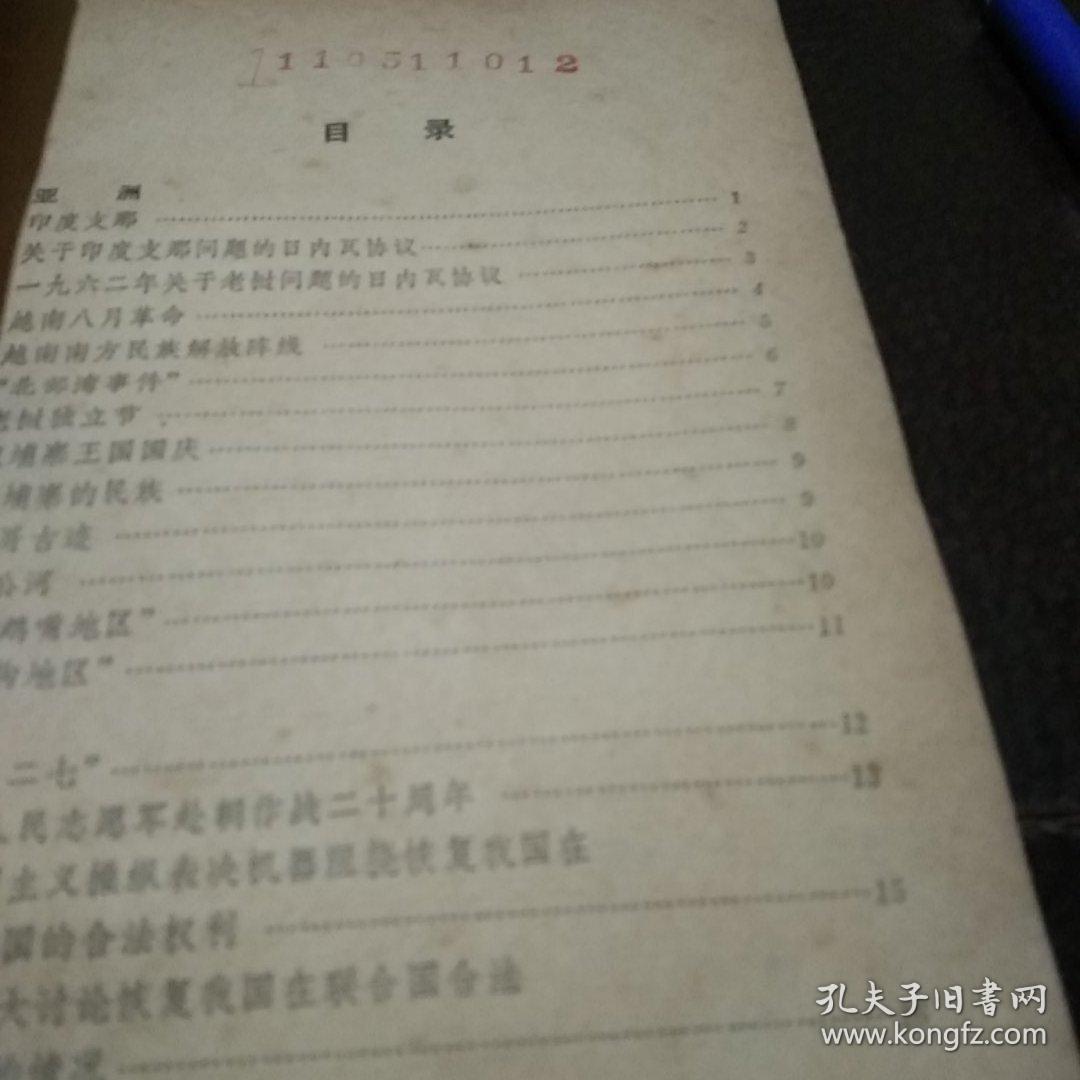 110311012
目 录
亚 洲
印度支那 1
关于印度支那问题的日内瓦协议 2
一九六二年关于老挝问题的日内瓦协议 3
越南八月革命 4
越南南方民族解放阵线 5
“北部湾事件” 6
老挝独立节 7
埔寨王国国庆 8
埔寨的民族 9
哥古迹 9
公河 10
鹉嘴地区” 10
钩地区” 11
二七” 12
民志愿军赴朝作战二十周年 13
主义操纵表决机器阻挠恢复我国在
国的合法权利 15
大讨论恢复我国在联合国合法
情况
孔夫子旧书网
www.kongfz.com